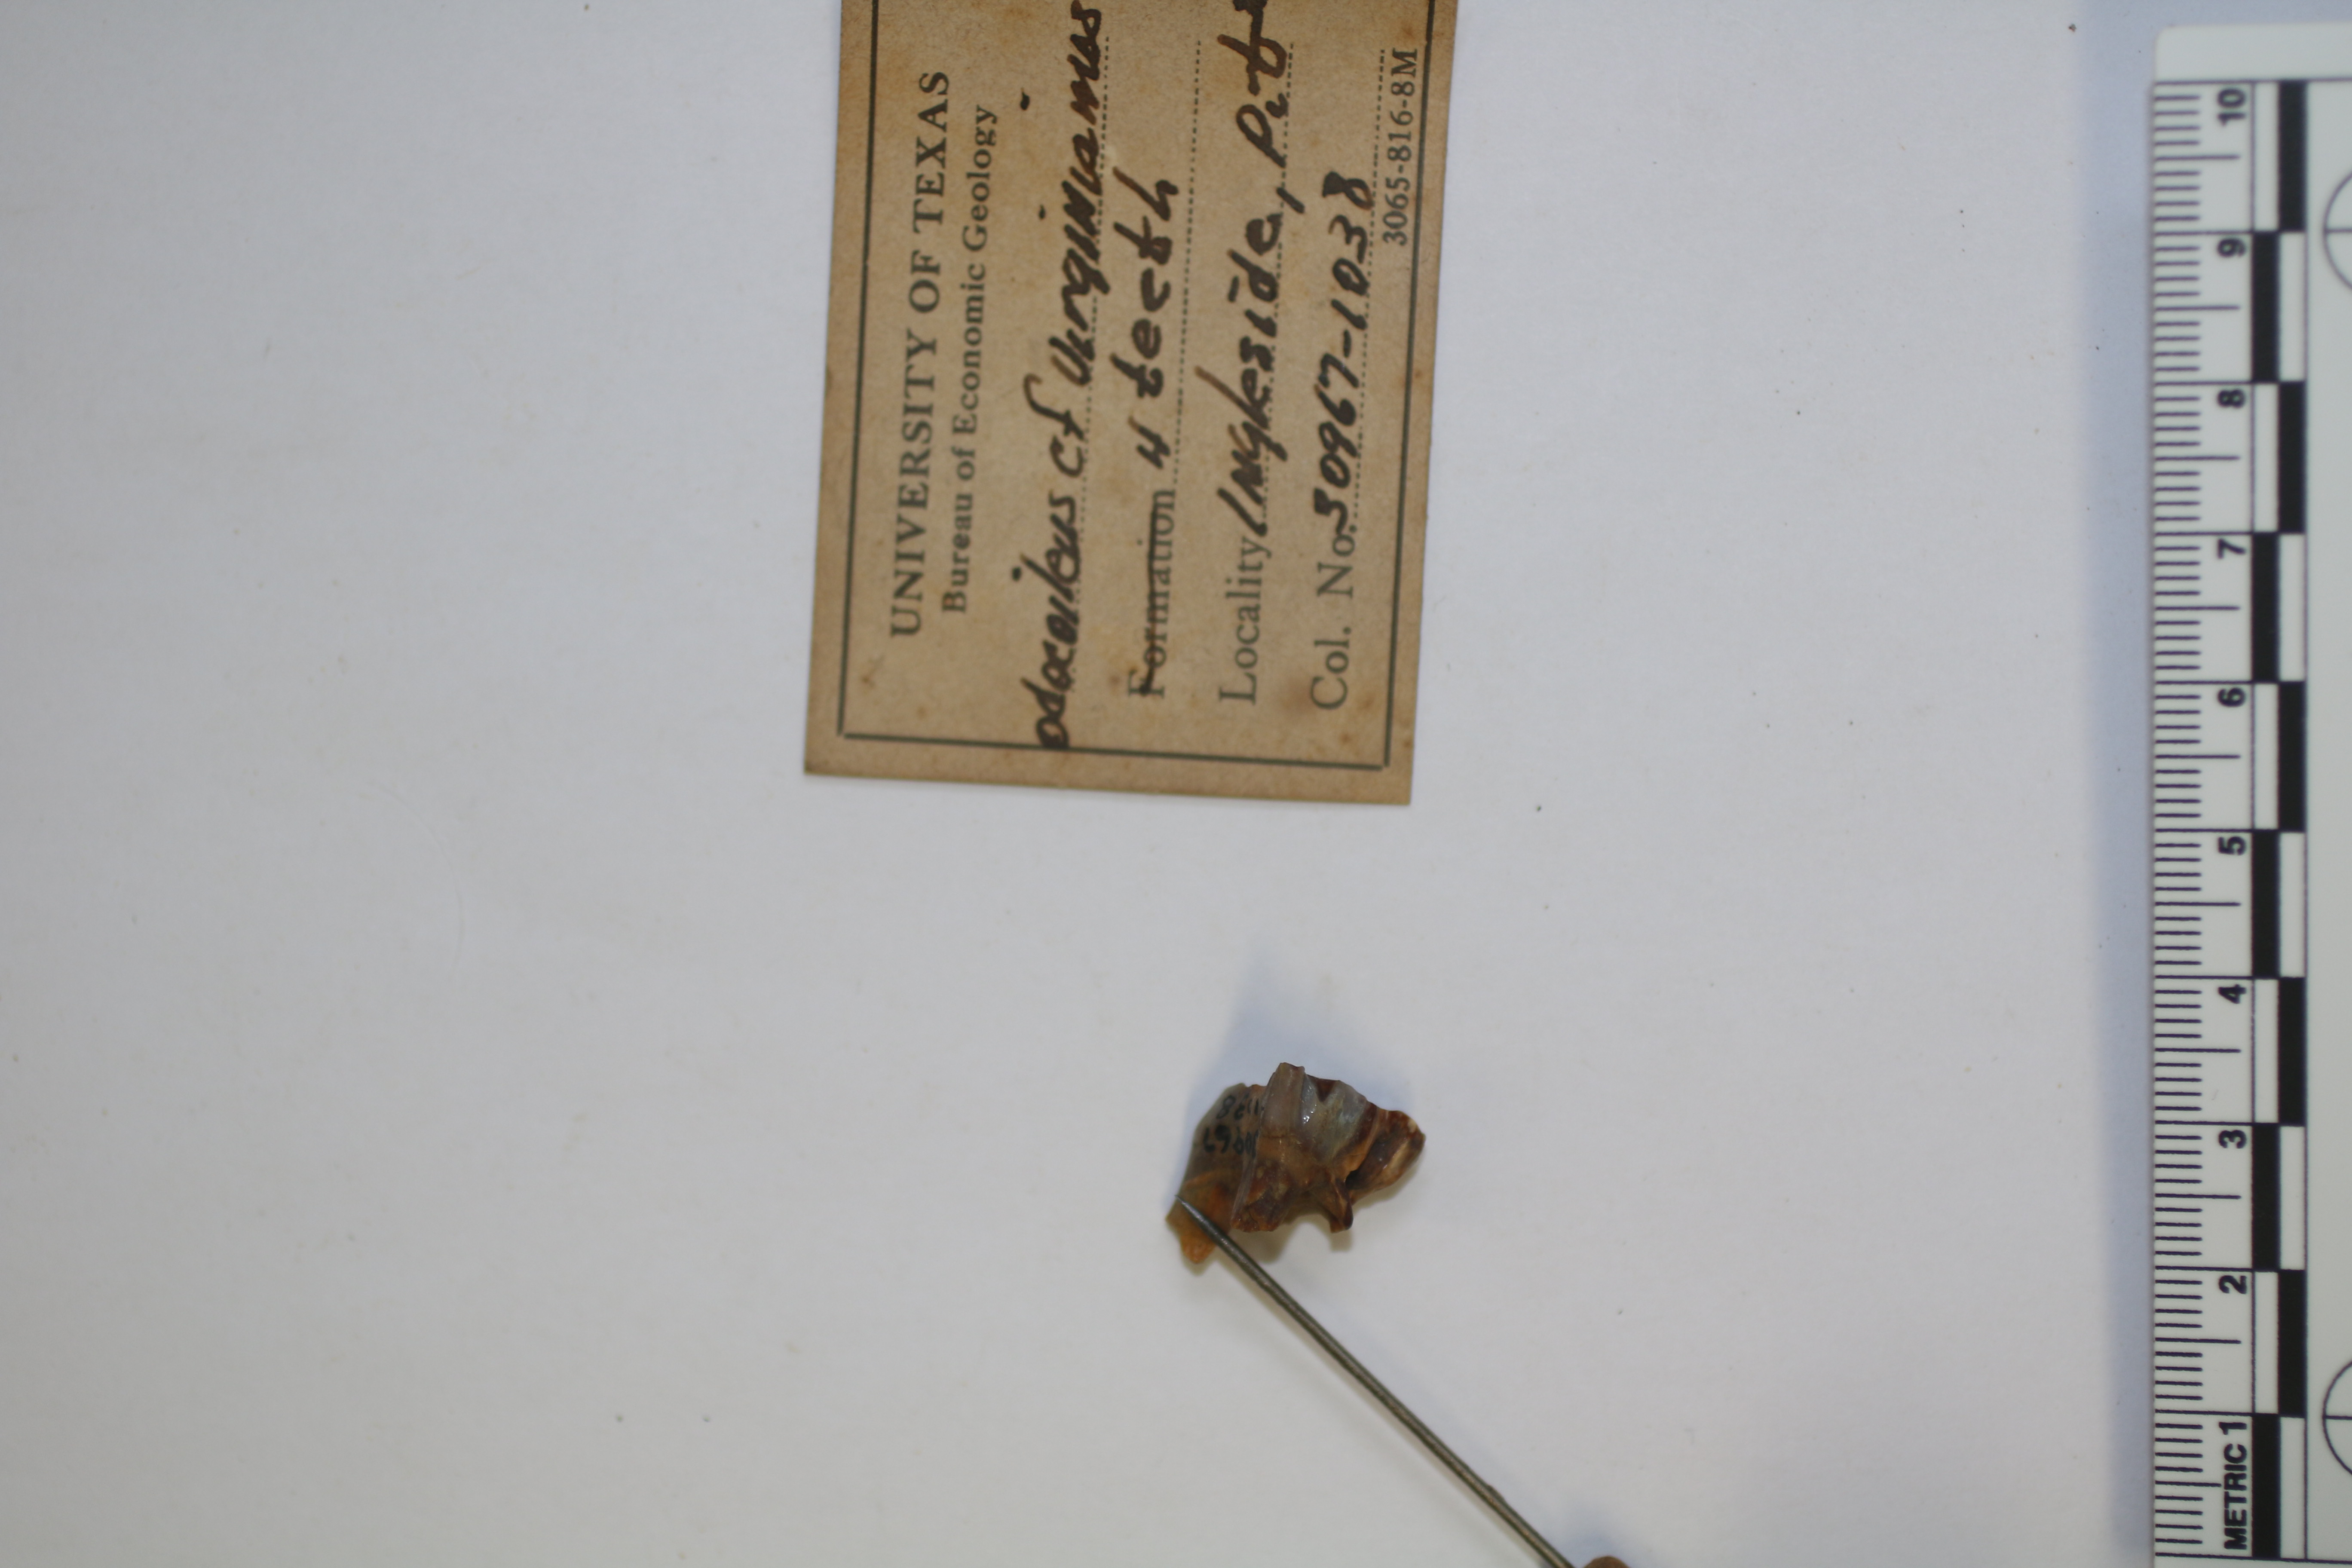 UNIVERSITY OF TEXAS
Bureau of Economic Geology
Odocoileus cf Virginianus
Formation 4 teeth
Locality Ingleside, Pit
Col. No. 30967-1038
3065-816-8M
METRIC 1 2 3 4 5 6 7 8 9 10